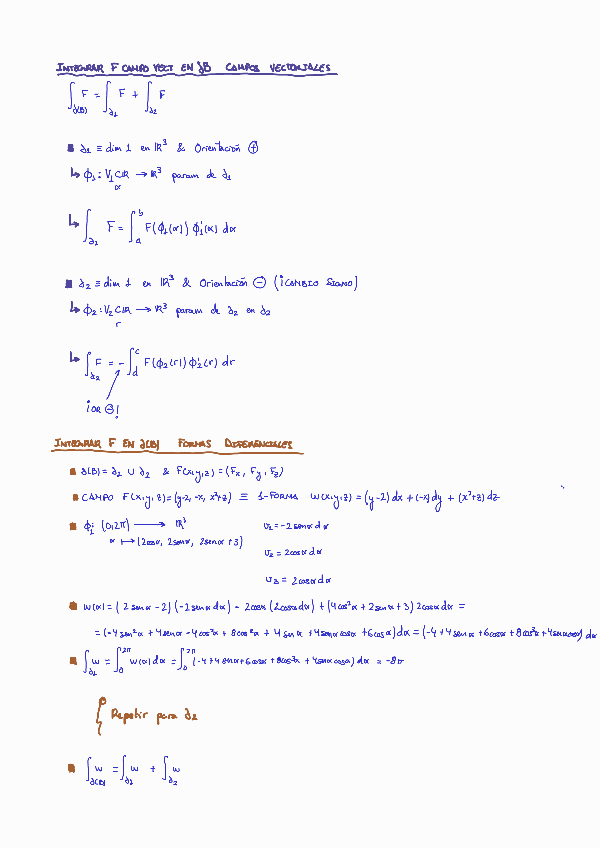 INTEGRAR F CAMPO VECT EN ∂B CAMPOS VECTORIALES
∫_∂(B) F = ∫_∂1 F + ∫_∂2 F
∂1 ≡ dim 1 en ℝ³ & Orientación ⊕
↳ ϕ1: V1⊂ℝ → ℝ³ param de ∂1
α
↳ ∫_∂1 F = ∫_a^b F(ϕ1(α)) ϕ1'(α) dα
∂2 ≡ dim 1 en ℝ³ & Orientación ⊖ (¡CAMBIO SIGNO)
↳ ϕ2: V2⊂ℝ → ℝ³ param de ∂2 en ∂2
r
↳ ∫_∂2 F = - ∫_d^c F(ϕ2(r)) ϕ2'(r) dr
¡OR ⊖!
INTEGRAR F EN ∂(B) FORMAS DIFERENCIALES
∂(B) = ∂1 ∪ ∂2 & F(x,y,z) = (Fx, Fy, Fz)
CAMPO F(x,y,z) = (y-2, -x, x²+z) ≡ 1-FORMA w(x,y,z) = (y-2)dx + (-x)dy + (x²+z)dz
ϕ1: (0,2π) → ℝ³ v1 = -2senα dα
α ↦ (2cosα, 2senα, 2senα+3)
v2 = 2cosα dα
v3 = 2cosα dα
w(α) = (2senα - 2)(-2senα dα) - 2cosα(2cosα dα) + (4cos²α + 2senα + 3) 2cosα dα =
= (-4sen²α + 4senα - 4cos²α + 8cos³α + 4senαcosα + 6cosα)dα = (-4+4senα+6cosα+8cos³α+4senαcosα)dα
∫_∂1 w = ∫_0^2π w(α)dα = ∫_0^2π (-4+4senα+6cosα+8cos³α+4senαcosα)dα = -8π
Repetir para ∂2
∫_∂(B) w = ∫_∂1 w + ∫_∂2 w